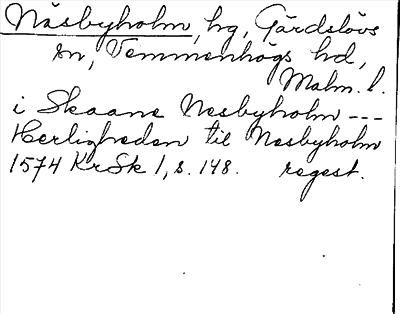 Näsbyholm, hg, Gärdslövs
sn, Vemmenhögs hd,
Malm. l.
i Skaane Nesbyholm ---
Herligheden til Nesbyholm
1574 KrSk 1, s. 148. regest.